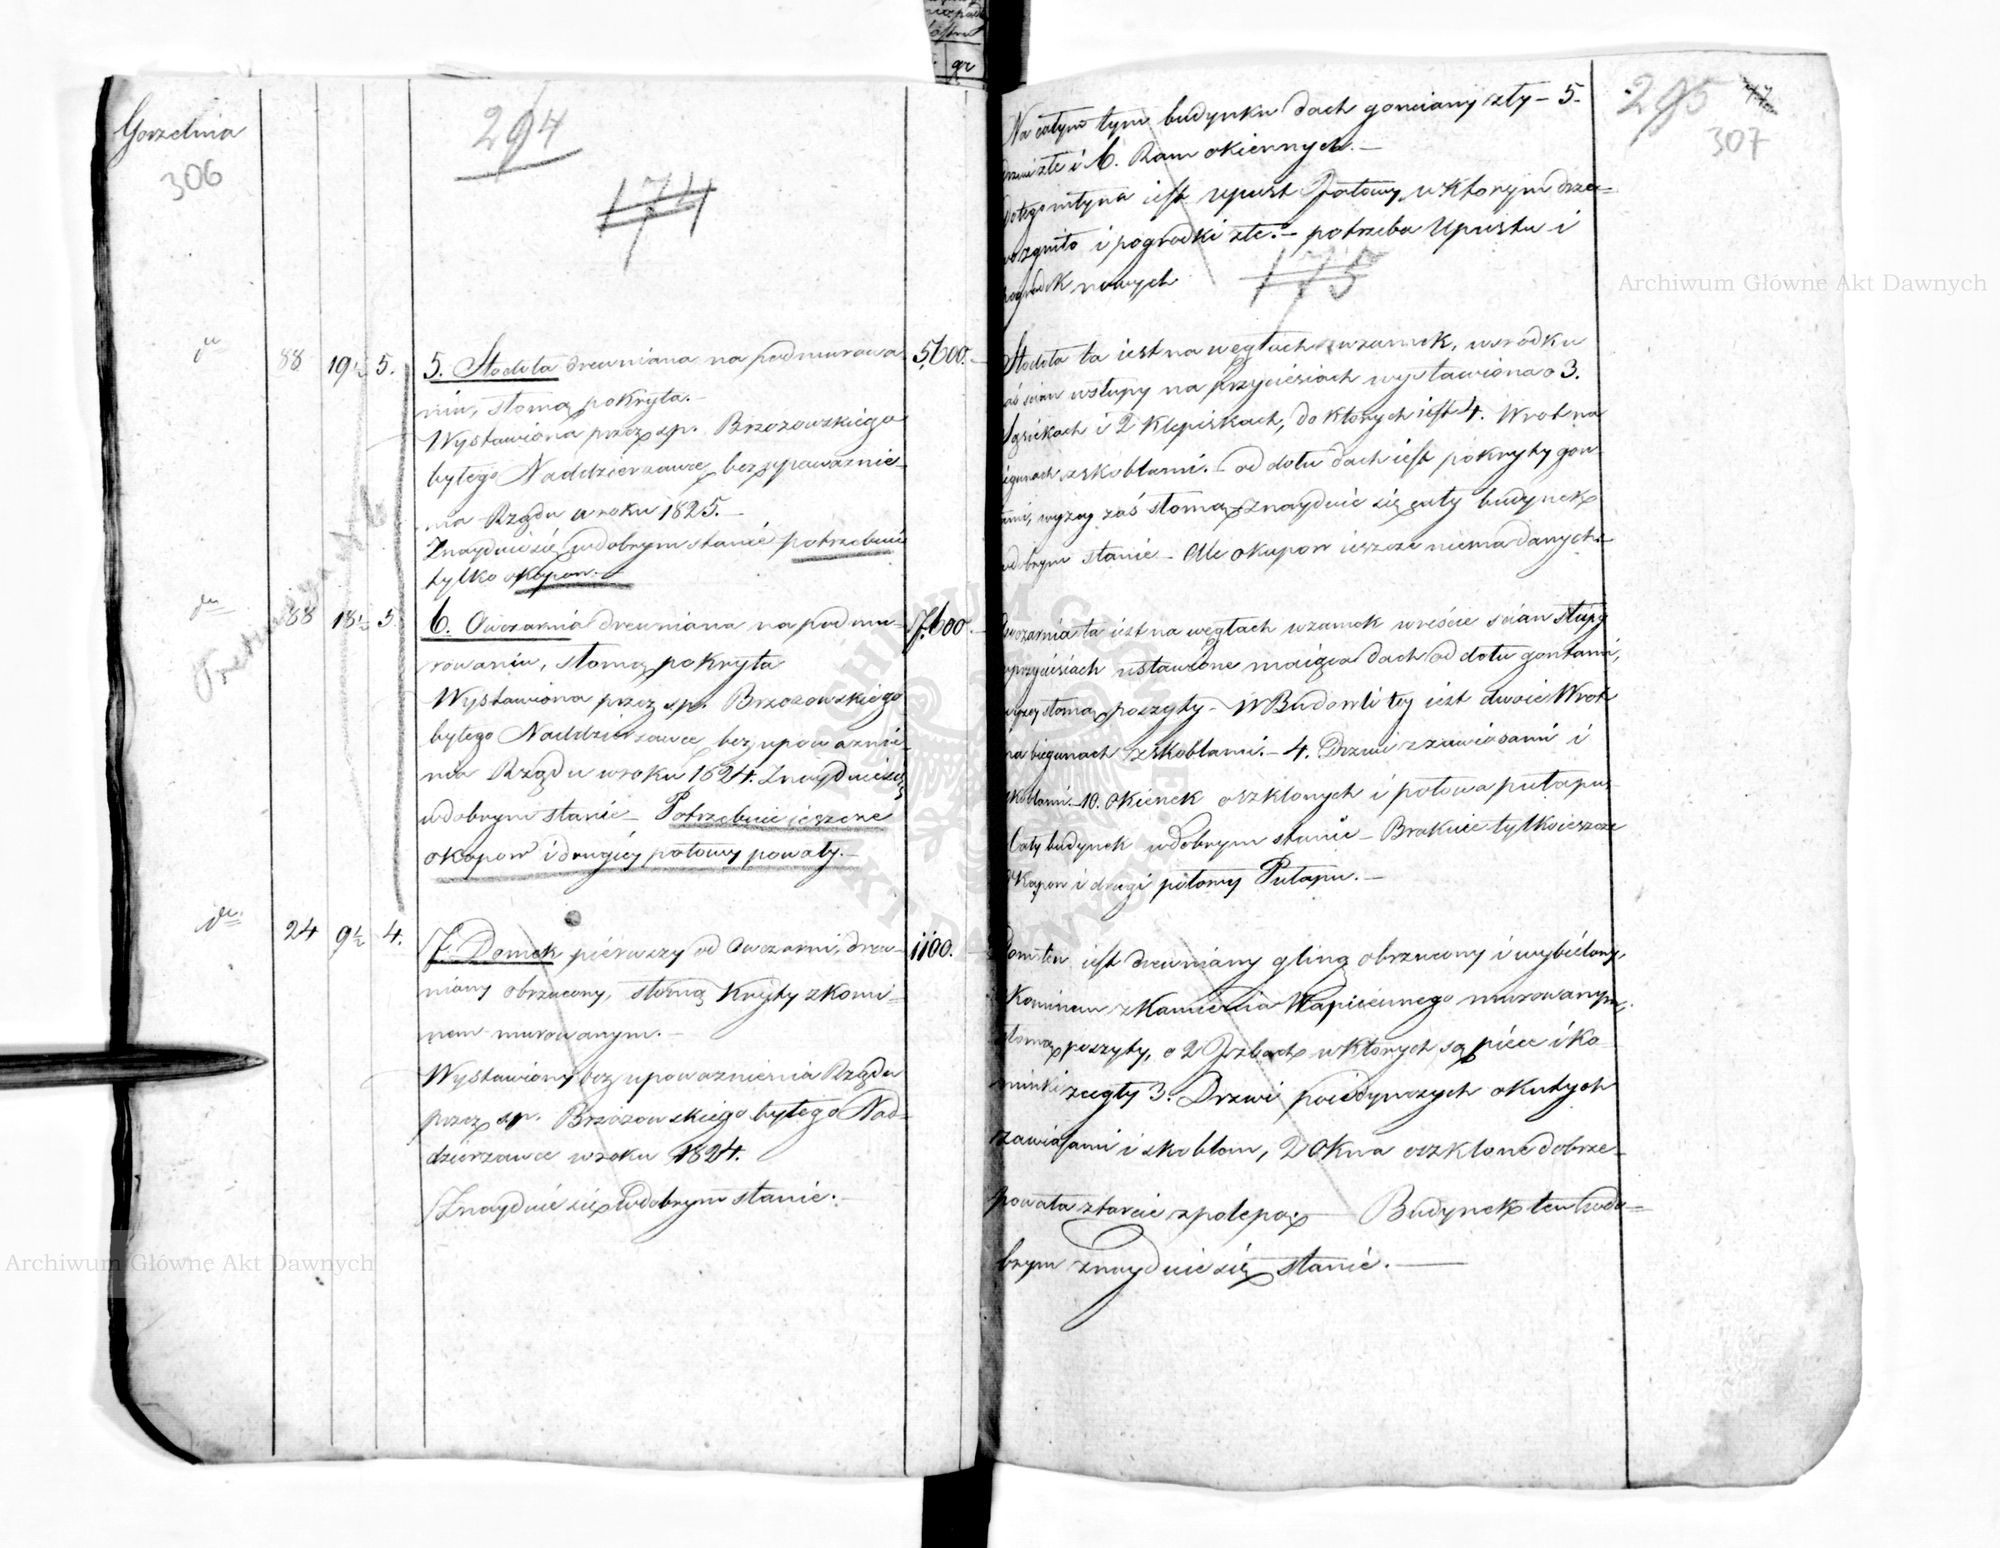 Gorzelnia
306
294
174
dto 88 19½ 5. 5. Stodoła drewniana na podmurowa 5,600.
niu, słomą pokryta.
Wystawiona przez sp. Brzozowskiego
byłego Naddzierżawcę bez upoważnie
nia Rządu w roku 1825.
Znayduie się w dobrym stanie potrzebuie
tylko okapow.
dto 88 18½ 5 6. Owczarnia drewniana na podmu- 7,600
rowaniu, słomą pokryta
Wystawiona przez sp. Brzozowskiego
byłego Naddzierżawcę bez upoważnie
nia Rządu w roku 1824. Znayduie się
w dobrym stanie – Potrzebuie ieszcze
okapow i drugiey połowy powały.
dto 24 9½ 4. 7. Domek pierwszy od Owczarni, drew- 1100.
niany obrzucony, słomą Kryty z komi-
nem murowanym.
Wystawiony bez upoważnienia Rządu
przez sp. Brzozowskiego byłego Nad-
dzierżawcę w roku 1824.
Znayduie się w dobrym stanie.
295
307
Na całym tym budynku dach gonciany zły – 5.
drzwi złe i 6. Ram okiennych.
do tego młyna iest Upust Jałowy w którym drze-
wo zgniło i pogrodki złe. – potrzeba Upustu i
pogrodk nowych
175
Stodoła ta iest na węgłach w zamek, w srodku
zaś scian w słupy na przyciesiach wystawiona o 3.
Sąsiekach i 2 Klepiskach, do których iest 4. Wrot na
biegunach z skoblami. – od dołu dach iest pokryty gon-
tami, wyżey zaś słomą znayduie się cały budynek
w dobrym stanie – Ale okapow ieszcze niema danych.
Owczarnia ta iest na węgłach w zamek w reście scian słupy
w przyciesiach ustawione maiąca dach od dołu gontami,
wyżey słomą poszyty – W Budowli tey iest dwoie Wrot
na biegunach z skoblami. – 4. Drzwi z zawiasami i
skoblami. – 10. okienek oszklonych i połowa pułapu.
Cały budynek w dobrym stanie – Brakuie tylko ieszcze
okapow i drugi połowy Pułapu.
Dom ten iest drewniany gliną obrzucony i wybielony,
z Kominem z Kamienia Wapiennego murowanym,
słomą poszyty, o 2 Izbach w których są piece i ko
minki z cegły 3. Drzwi poiedynczych okutych
z zawiasami i skoblam, 2 okna oszklone dobrze
powała z tarcic z polepą. Budynek ten w do-
brym znayduie się stanie.
Archiwum Główne Akt Dawnych
Archiwum Główne Akt Dawnych